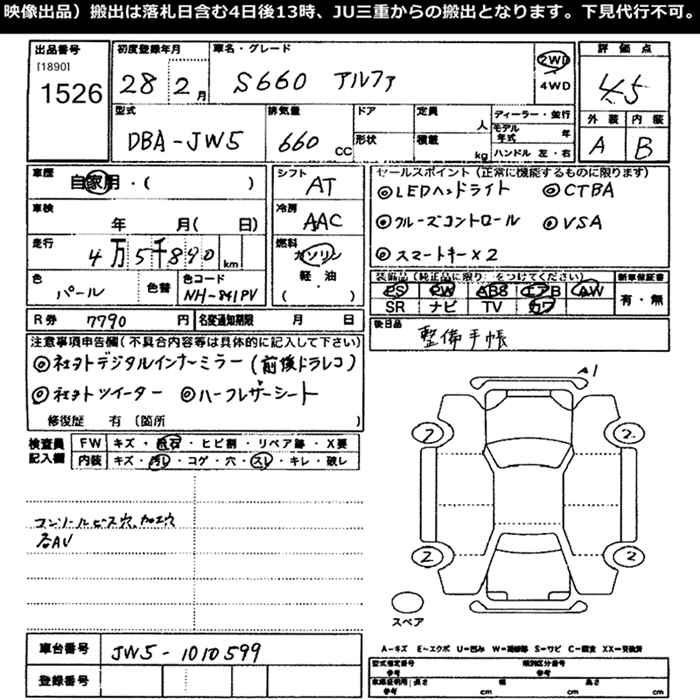 映像出品）搬出は落札日含む4日後13時、JU三重からの搬出となります。下見代行不可。
出品番号
[1890]
1526
初度登録年月
28 2月
車名・グレード
S660 アルファ
2WD
4WD
評価点
4.5
外装 内装
A B
型式
DBA-JW5
排気量
660 CC
ドア
形状
定員
人
積載
kg
ディーラー・並行
モデル年式 年
ハンドル 左・右
車歴
自家用・( )
車検
年 月( 日)
走行
4万5千890 km
色
パール
色替
色コード
NH-841PV
シフト
AT
冷房
AAC
燃料
ガソリン
軽・油
( )
セールスポイント（正常に機能するものに限ります）
◎LEDヘッドライト ◎CTBA
◎クルーズコントロール ◎VSA
◎スマートキー×2
装備品（純正品に限り○をつけてください）
PS PW ABS エアB AW
SR ナビ TV カワ
新車保証書
有・無
R券 7790 円
名変通知期限 月 日
後日品
整備手帳
注意事項申告欄（不具合内容等は具体的に記入して下さい）
◎社外デジタルインナーミラー(前後ドラレコ)
◎社外ツイーター ◎ハーフレザーシート
修復歴 有 〔箇所 〕
検査員記入欄
FW キズ・飛石・ヒビ割・リペア跡・X要
内装 キズ・汚レ・コゲ・穴・スレ・キレ・破レ
コンソールビス穴、加工穴
各AV
A1
7
2
2
2
スペア
A-キズ E-エクボ U-凹み W-補修跡 S-サビ C-腐食 XX-交換済
車台番号
JW5-1010599
登録番号
型式指定番号
参考
類別区分番号
車庫証明用
参考
長さ cm
幅 cm
高さ cm